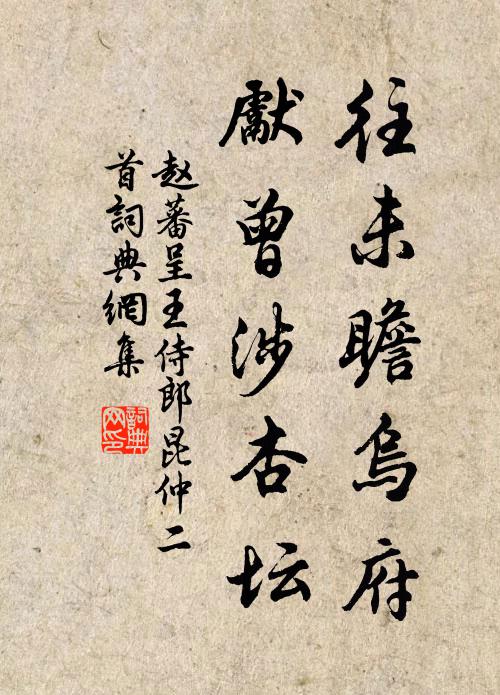 往未瞻烏府
獻曾涉杏坛
赵蕃呈王侍郎昆仲二
首詞典網集
詞典网印